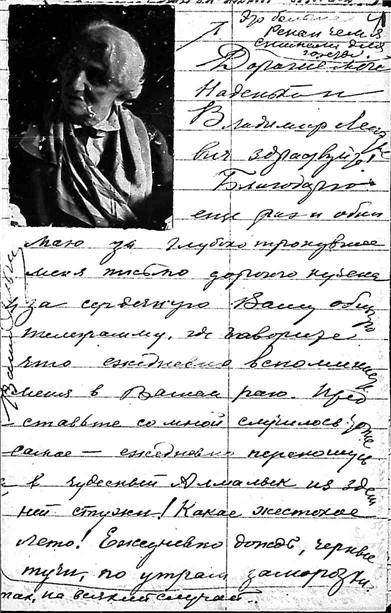 Дорогие мои
Наденька и
Владимир Лео
вич здравствуйте!
Благодарю
еще раз и обни
маю за глубоко тронувшее
меня письмо дорогого
за сердечную Вашу общую
телеграмму, где говорите
что ежедневно вспоминаете
меня в Вашем раю. Пред
ставьте со мной случилось то же
самое — ежедневно переношусь
в чудесный Алмалык из здеш
ней стужи! Какое жестокое
лето! Ежедневно дождь, черные
тучи, по утрам заморозки.
так, на всякий случай.